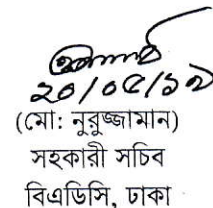 ২০/০৫/১৯
(মো: নুরুজ্জামান)
সহকারী সচিব
বিএডিসি, ঢাকা